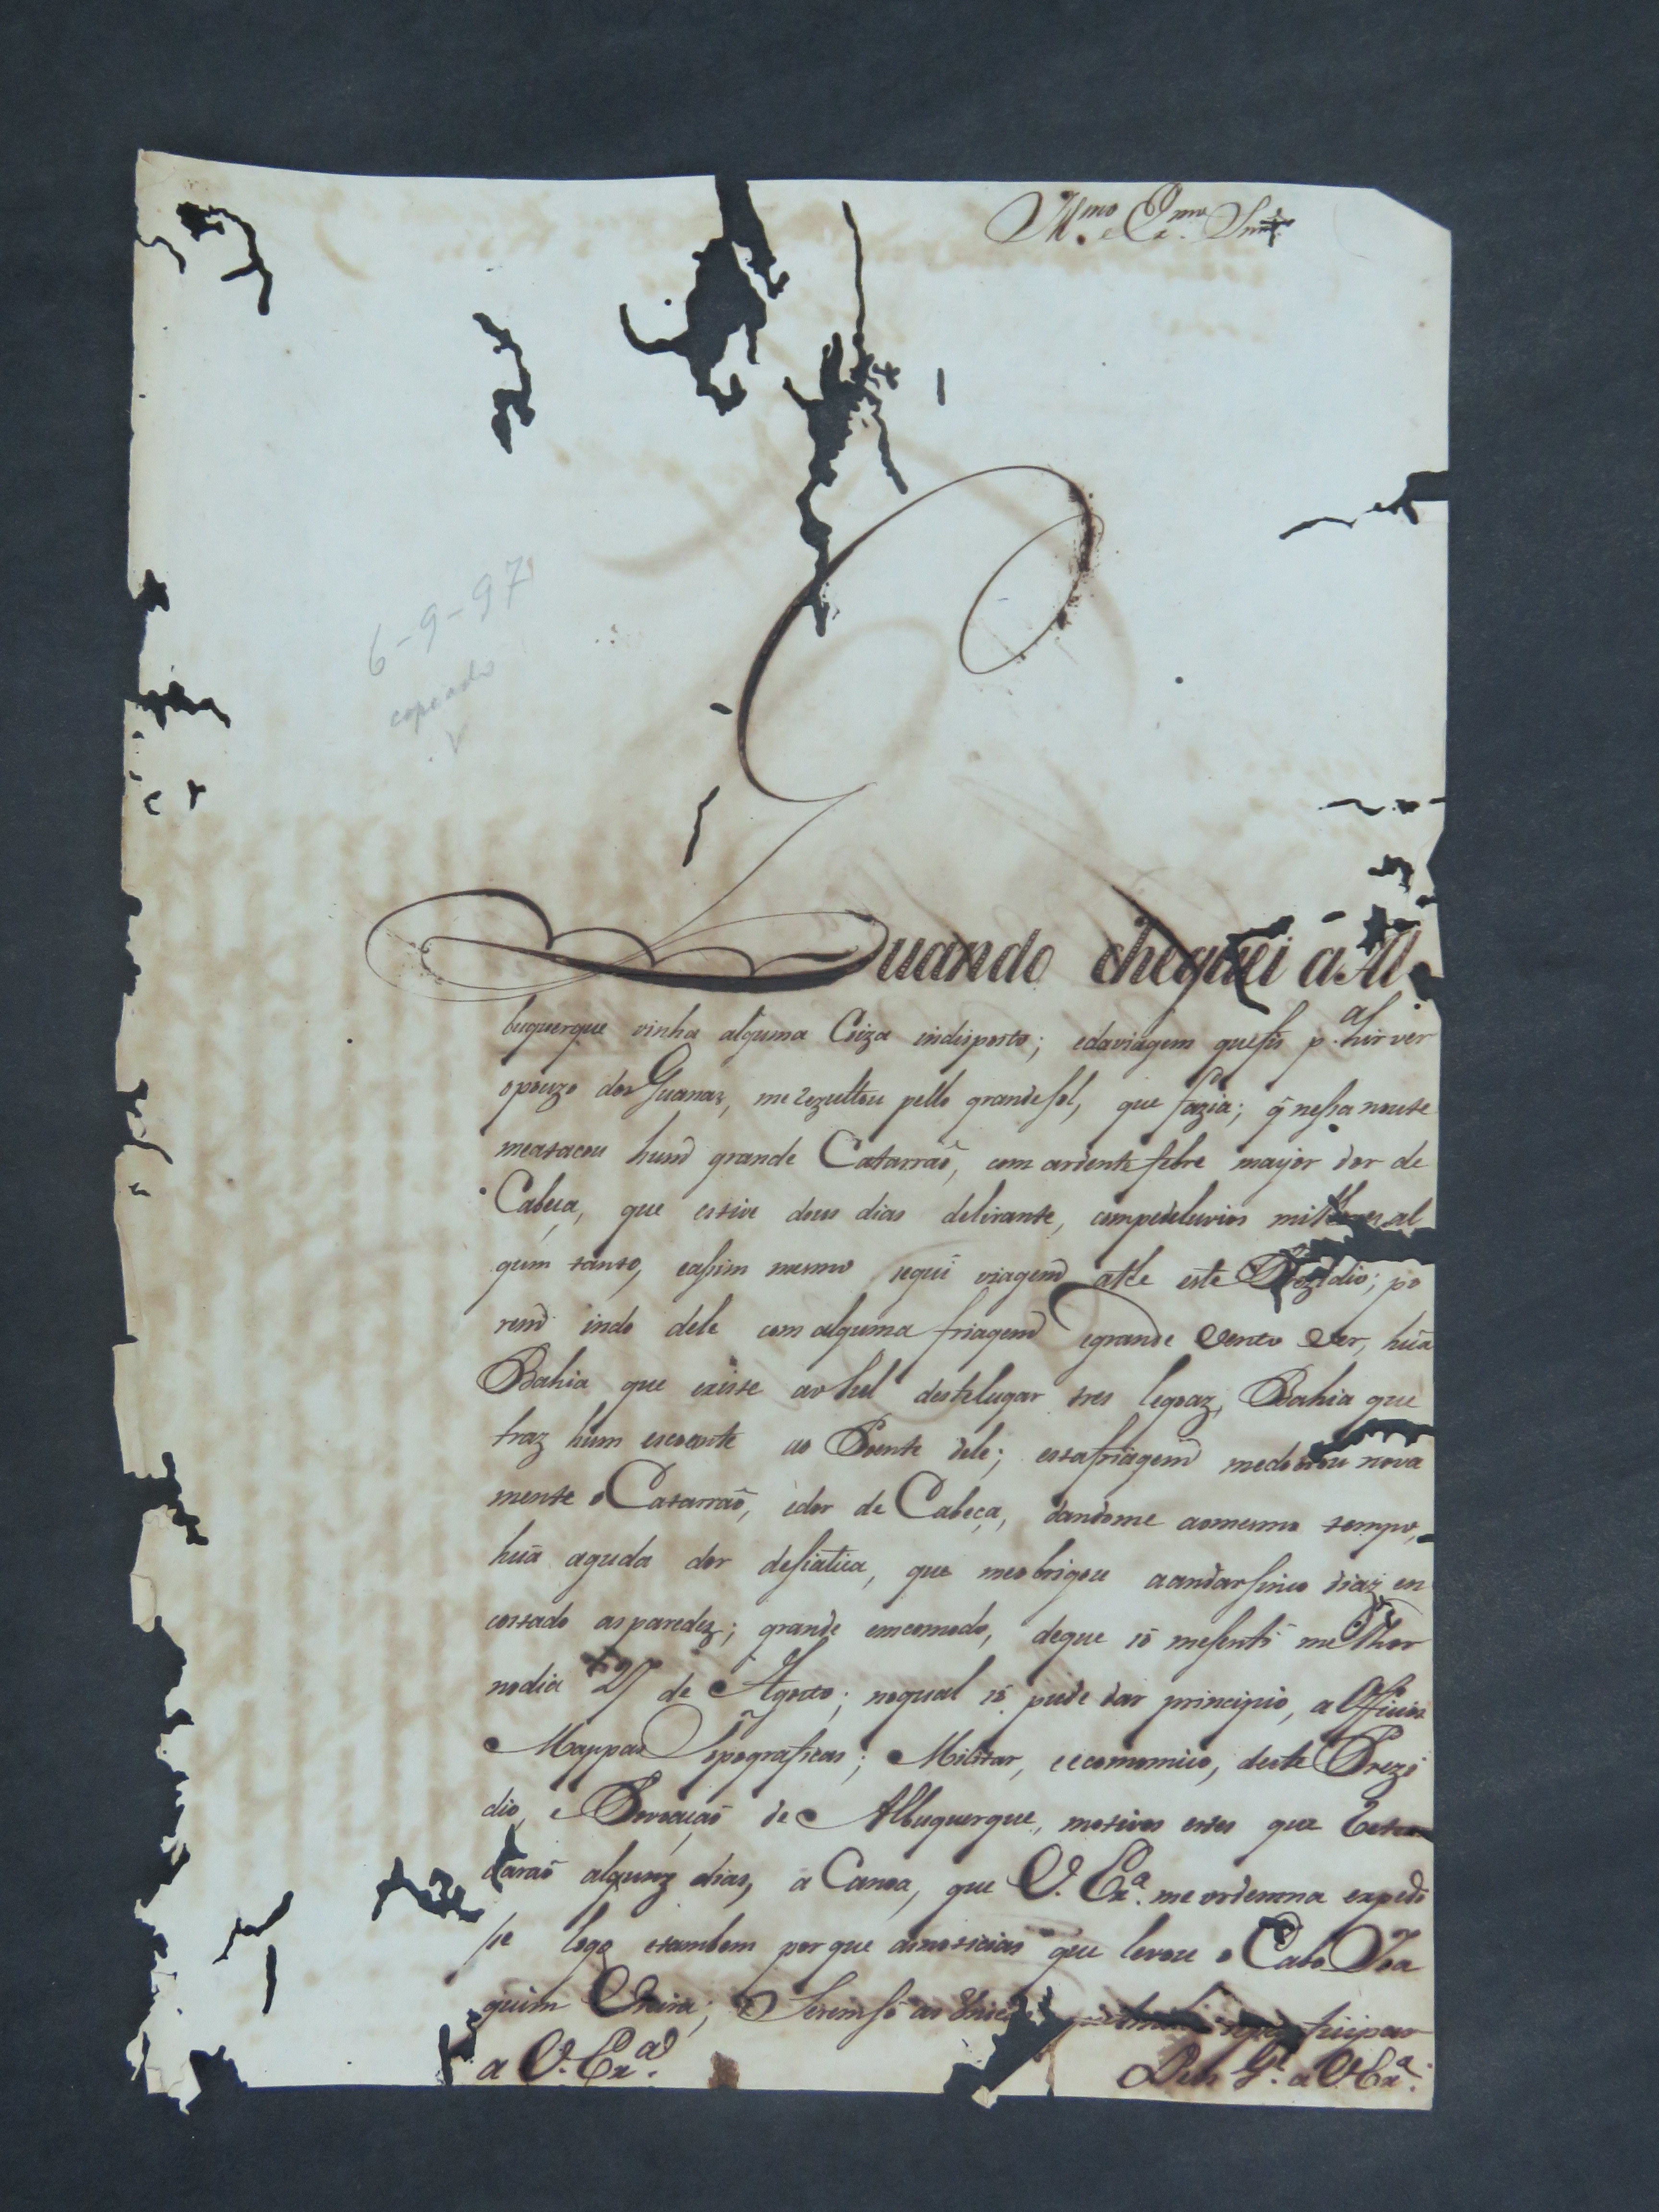 Ill.mo e Ex.mo Snr.
6-9-97
copiado
Quando cheguei á Al
buquerque vinha alguma Coiza indisposto; edaviagem quefis p.a hir ver
opouzo dos Guanaz, me rezultou pello grande sol, que fazia; q̃ nessa noute
meatacou hum grande Catarraõ, com ardente febre mayor dor de
Cabeça, que estive dous dias delirante, compedeluvios mi al
gum tanto, eassim mesmo segui viagem athe este Prezidio; po
rem indo dele com alguma friagem egrande Vento Ver, huã
Bahia que existe ao Sul destelugar tres legoaz, Bahia que
traz hum escoante ao Poente dele; estafriagem me nova
mente o Catarraõ, edor de Cabeça, dandome aomesmo tempo,
huã aguda dor desiatica, que meobrigou aandarsinco diaz en
costado asparedez; grande emcomodo, deque só mesenti melhor
nodia 27 de Agosto; noqual só pude dar principio, a Officios
Mappas Topograficas; Militar, e economico, deste Prezi
dio, e Povoaçaõ de Albuquerque, motivos estes que Retar
daraõ algunz dias, a Canoa, que V. Ex.a me ordenna expedi
se logo etambem por que asnoticias que levou o Cabo Joa
quim Vieira; Seremsó as participar
a V. Ex.a Deos G.e a V. Ex.a